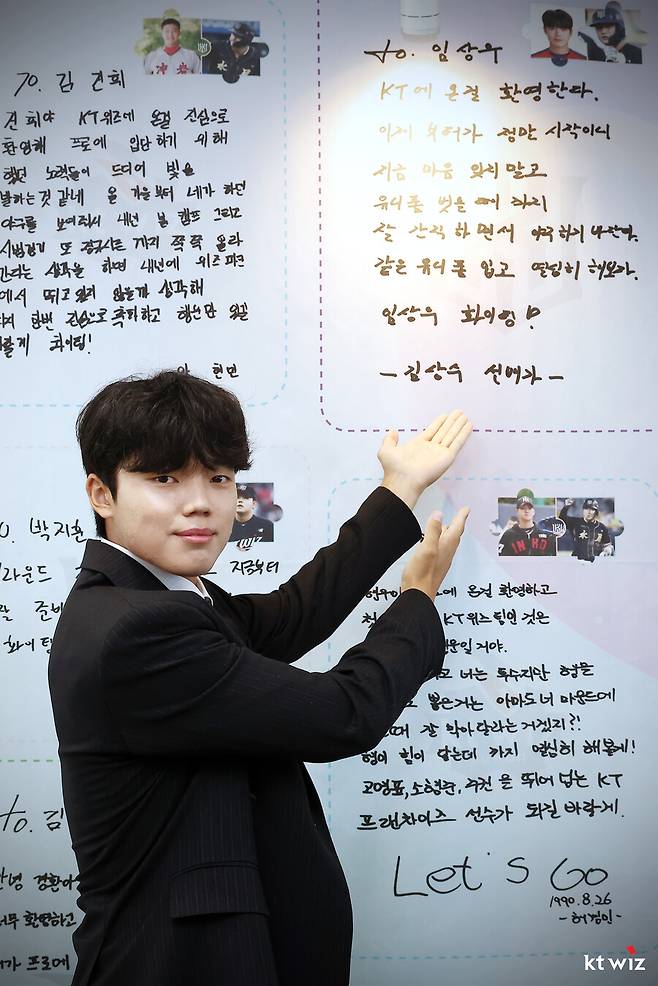 To. 김 건희
건희야 KT위즈에 온걸 진심으로
환영해 프로에 입단하기 위해
했던 노력들이 드디어 빛을
발하는 것 같네 올 가을부터 네가 하던
야구를 보여줘서 내년 봄 캠프 그리고
시범경기 또 정규시즌 까지 쭉 쭉 올라
간다는 생각을 하면 내년에 위즈파크
에서 뛰고 있지 않을까 생각해
다시 한번 진심으로 축하하고
화이팅!
현민
to. 임상우
KT에 온걸 환영한다.
이제 부터가 정말 시작이니
지금 마음 잊지말고
유니폼 벗을 때 까지
잘 간직하면서 야구하기 바란다.
같은 유니폼 입고 열심히 해보자.
임상우 화이팅!
-김상수 선배가-
박지훈
라운드
지금부터
준비
화이팅
온걸 환영하고
KT위즈 팀인 것은
거야.
너는 투수지만 형을
뽑은거는 아마도 너 마운드에
때 잘 막아달라는 거겠지?!
형이 힘이 닿는데 까지 열심히 해볼게!
고영표, 소형준, 주권 을 뛰어 넘는 KT
프랜차이즈 선수가 되길 바랄게.
Let's Go
1990.8.26
-허경민-
to. 김
안녕 경환아
너무 환영하고
프로에
kt wiz